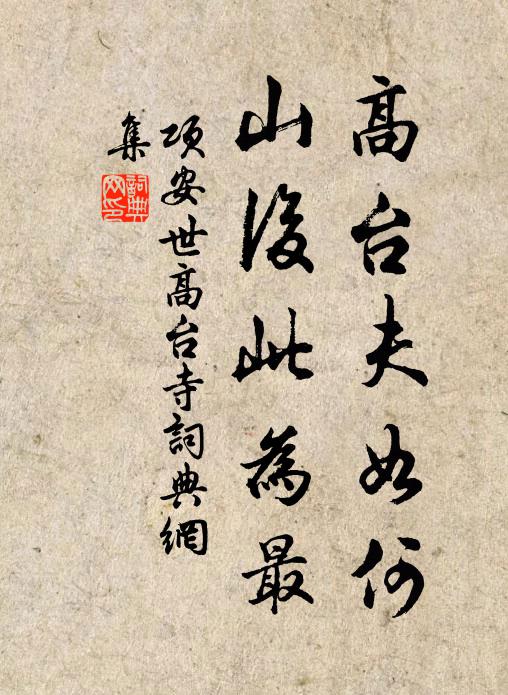 高台夫如何
山後此為最
項安世高台寺詞典網
集
詞典
网印